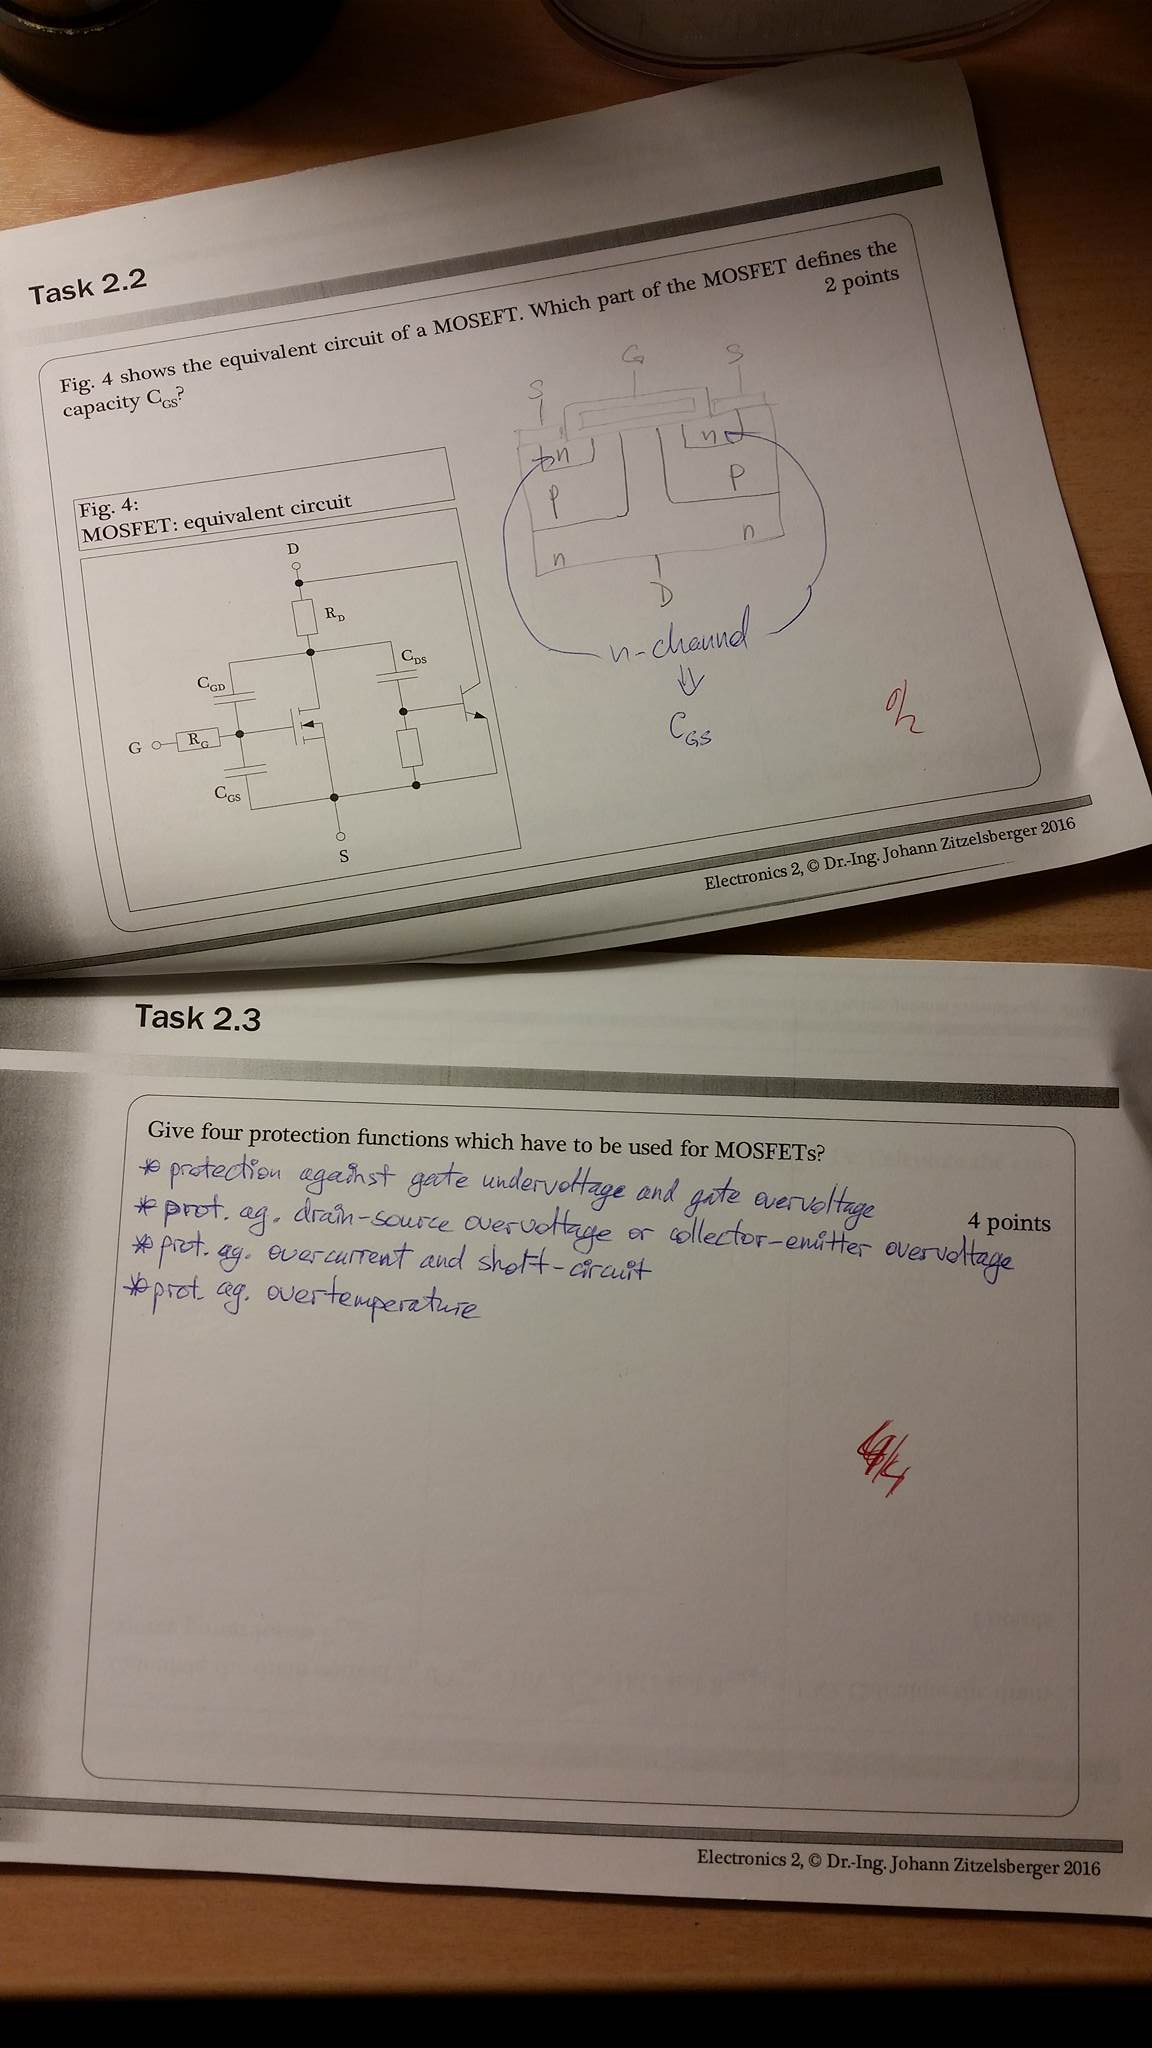 Task 2.2
Fig. 4 shows the equivalent circuit of a MOSEFT. Which part of the MOSFET defines the
capacity CGS?
2 points
Fig. 4:
MOSFET: equivalent circuit
D
RD
CGD
CDS
G
RG
CGS
S
G
S
S
n
n
p
p
n
n
D
n-channel
CGS
0/2
Electronics 2, © Dr.-Ing. Johann Zitzelsberger 2016
Task 2.3
Give four protection functions which have to be used for MOSFETs?
4 points
* protection against gate undervoltage and gate overvoltage
* prot. ag. drain-source overvoltage or collector-emitter overvoltage
* prot. ag. overcurrent and short-circuit
* prot. ag. overtemperature
4/4
Electronics 2, © Dr.-Ing. Johann Zitzelsberger 2016